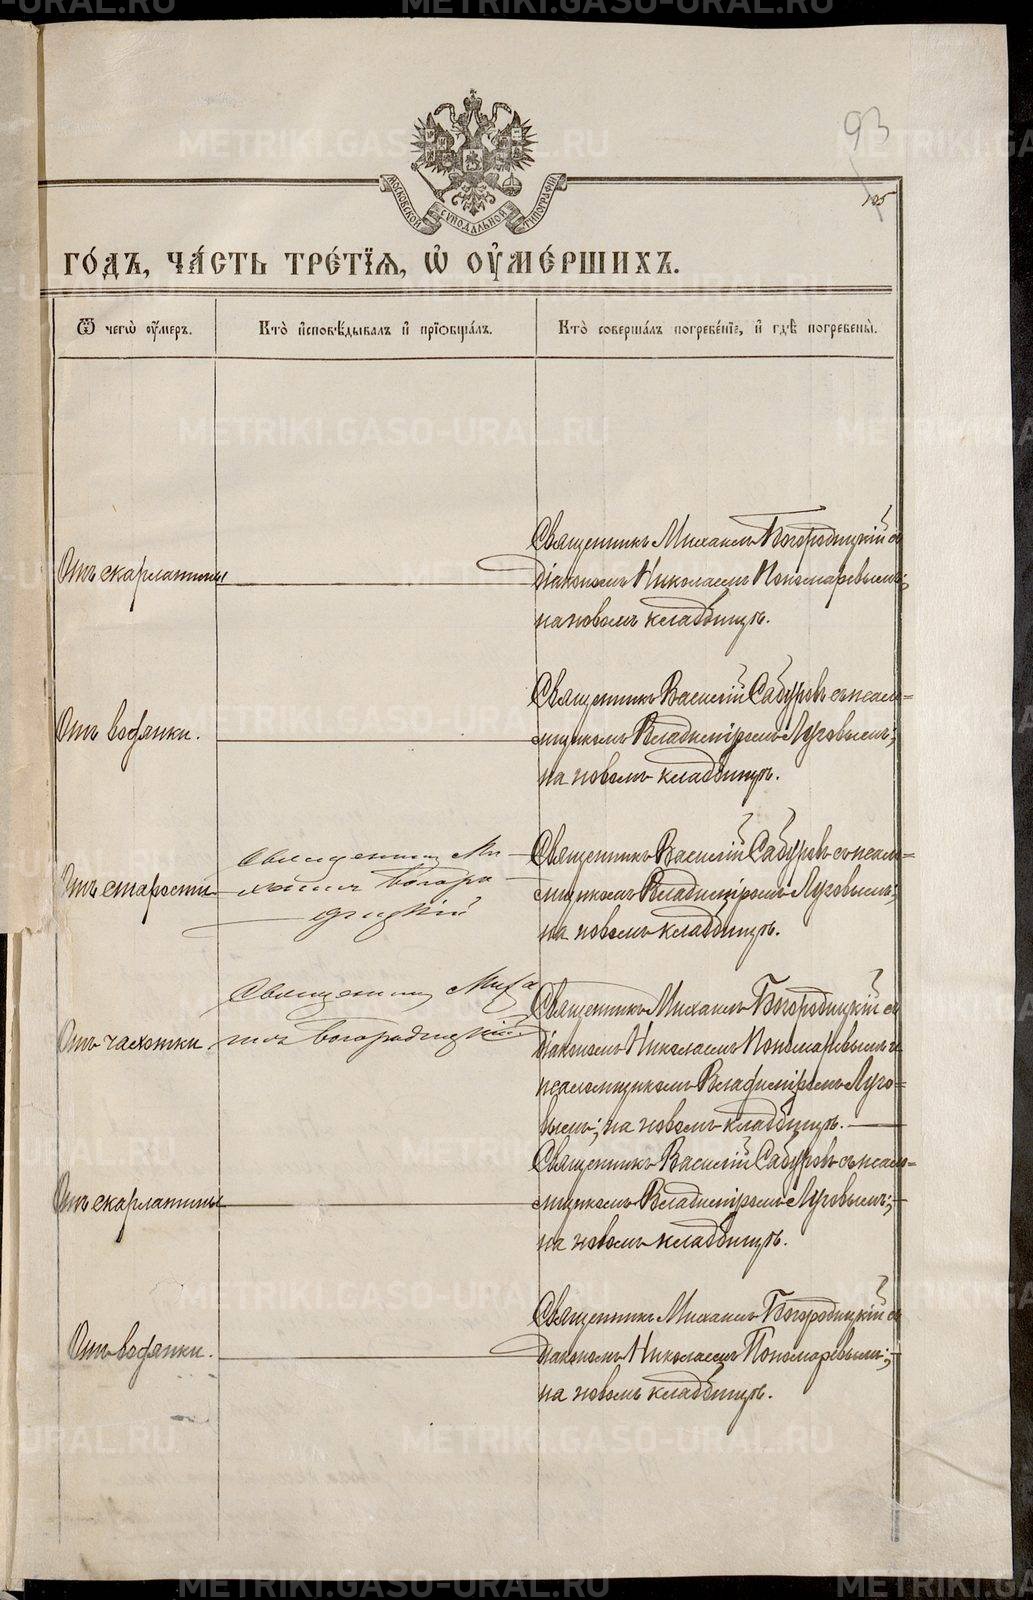 93
105
МОСКОВСКОЙ СУНОДАЛЬНОЙ ТИПОГРАФІИ
ГО́ДЪ, ЧА́СТЬ ТРЕ́ТІѦ, Ѡ҆ ОУ҆МЕ́РШИХЪ.
Ѿ чегѡ̀ оу҆́меръ.
Кто̀ и҆сповѣ́дывалъ и҆ прїѡбща́лъ.
Кто̀ соверша́лъ погребе́нїе, и҆ гдѣ̀ погребены̀.
Отъ скарлатины
Священникъ Михаилъ Богородицкій съ
діакономъ Николаемъ Пономаревымъ;
на новомъ кладбищѣ.
Отъ водянки.
Священникъ Василій Сабуровъ съ псало=
мщикомъ Владиміромъ Луговымъ;
на новомъ кладбищѣ.
Отъ старости
Священникъ Ми
хаилъ Богоро
дицкій
Священникъ Василій Сабуровъ съ псало=
мщикомъ Владиміромъ Луговымъ;
на новомъ кладбищѣ.
Отъ чахотки
Священникъ Миха
илъ Богородицкій
Священникъ Михаилъ Богородицкій съ
діакономъ Николаемъ Пономаревымъ и
псаломщикомъ Владиміромъ Луго=
вымъ; на новомъ кладбищѣ.
Отъ скарлатины
Священникъ Василій Сабуровъ съ псало=
мщикомъ Владиміромъ Луговымъ;
на новомъ кладбищѣ.
Отъ водянки.
Священникъ Михаилъ Богородицкій съ
діакономъ Николаемъ Пономаревымъ;
на новомъ кладбищѣ.
METRIKI.GASO-URAL.RU